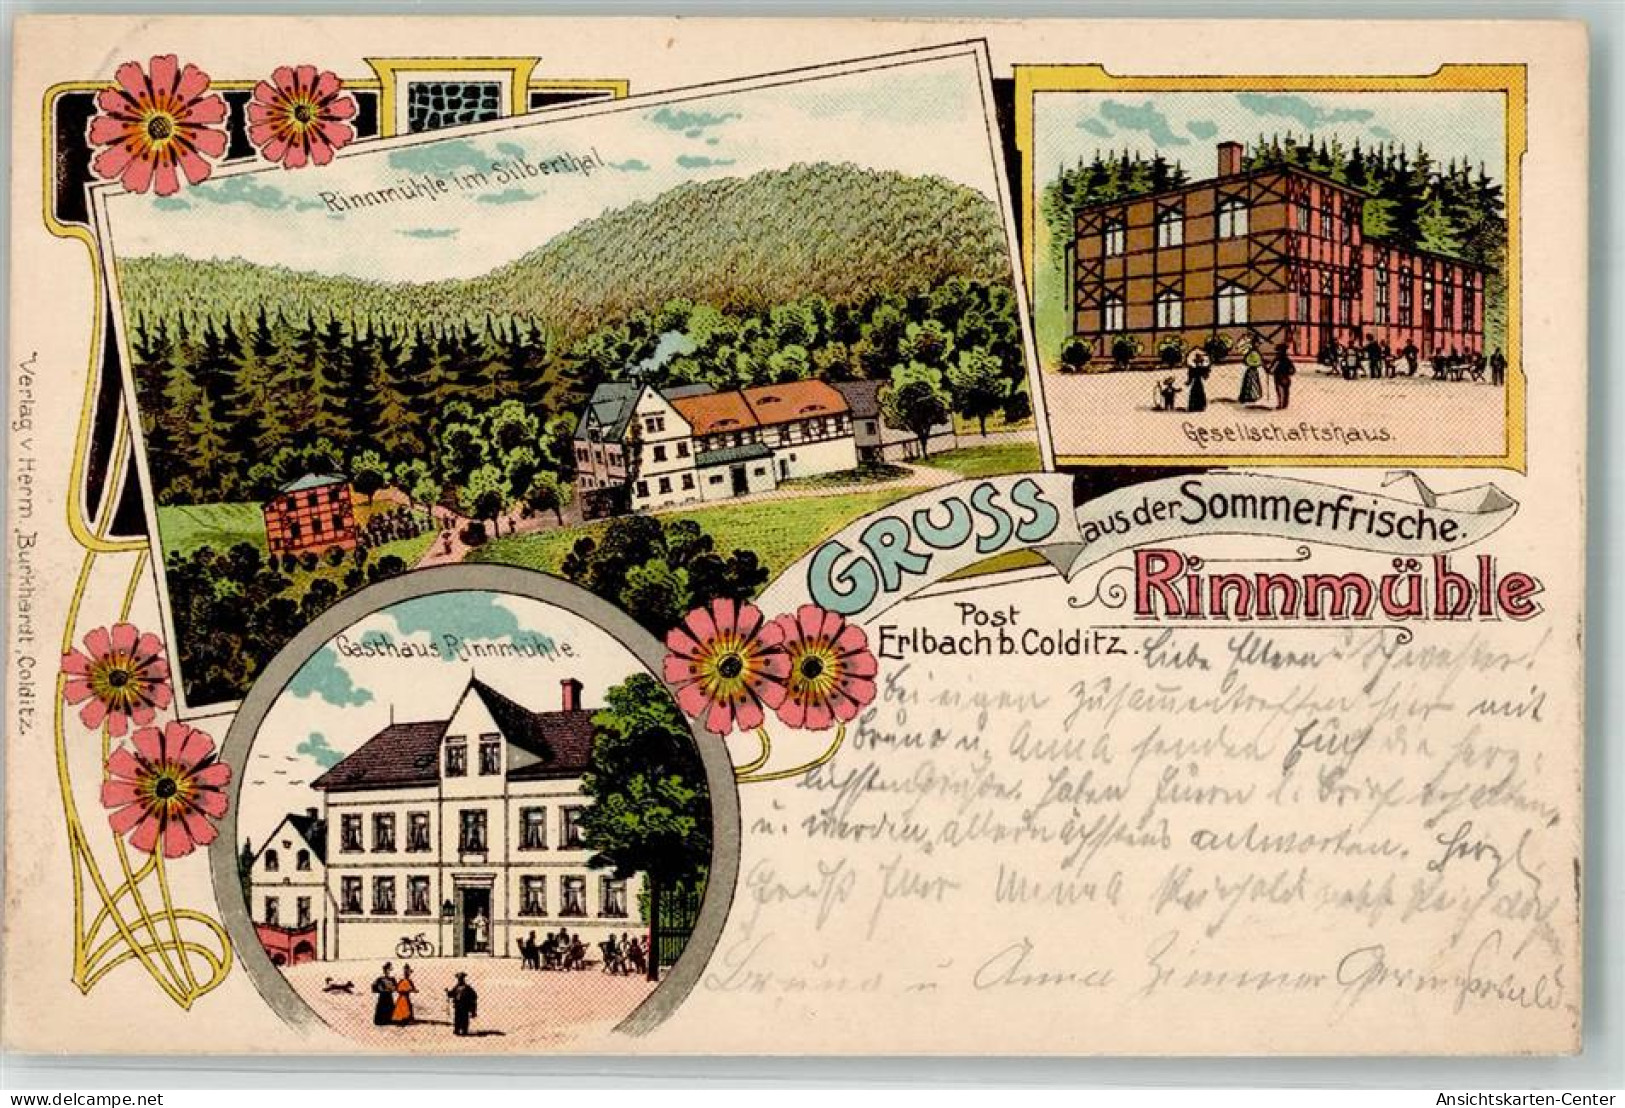 Rinnmühle im Silberthal
Gesellschaftshaus.
GRUSS aus der Sommerfrische.
Rinnmühle
Post
Erlbach b. Colditz.
Gasthaus Rinnmühle.
Verlag v. Herm. Burkhardt, Colditz.
Liebe Eltern u. Schwester!
Bei eigen Zusammentreffen hier mit
Bruno u. Anna senden Euch die herz-
lichsten Grüße. Haben Euern l. Brief erhalten,
u. werden allernächstens antworten. Herzl.
Gruß Euer Reinhold
Bruno u Anna Zimmer
Ansichtskarten-Center
www.delcampe.net